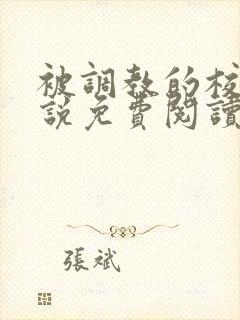 被調教的校
說免費閱讀
張斌